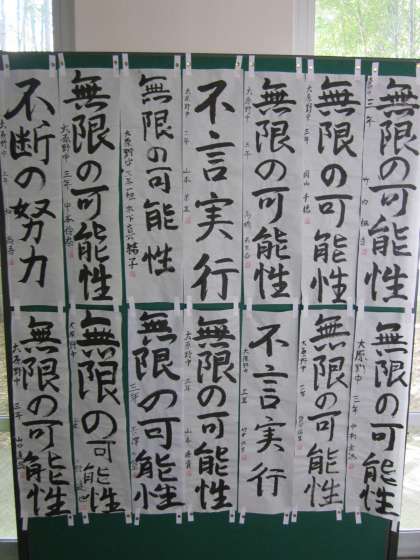 無限の可能性
三年
無限の可能性
大原野中 三年
無限の可能性
大原野中 三年
不言実行
大原野中 二年 山本
無限の可能性
大原野中
無限の可能性
大原野中 三年
不断の努力
大原野中 三年
無限の可能性
大原野中 三年
無限の可能性
大原野中 三年
不言実行
大原野中 三年
無限の可能性
大原野中 三年 山本
無限の可能性
三年
無限の可能性
大原野中
無限の可能性
大原野中 三年